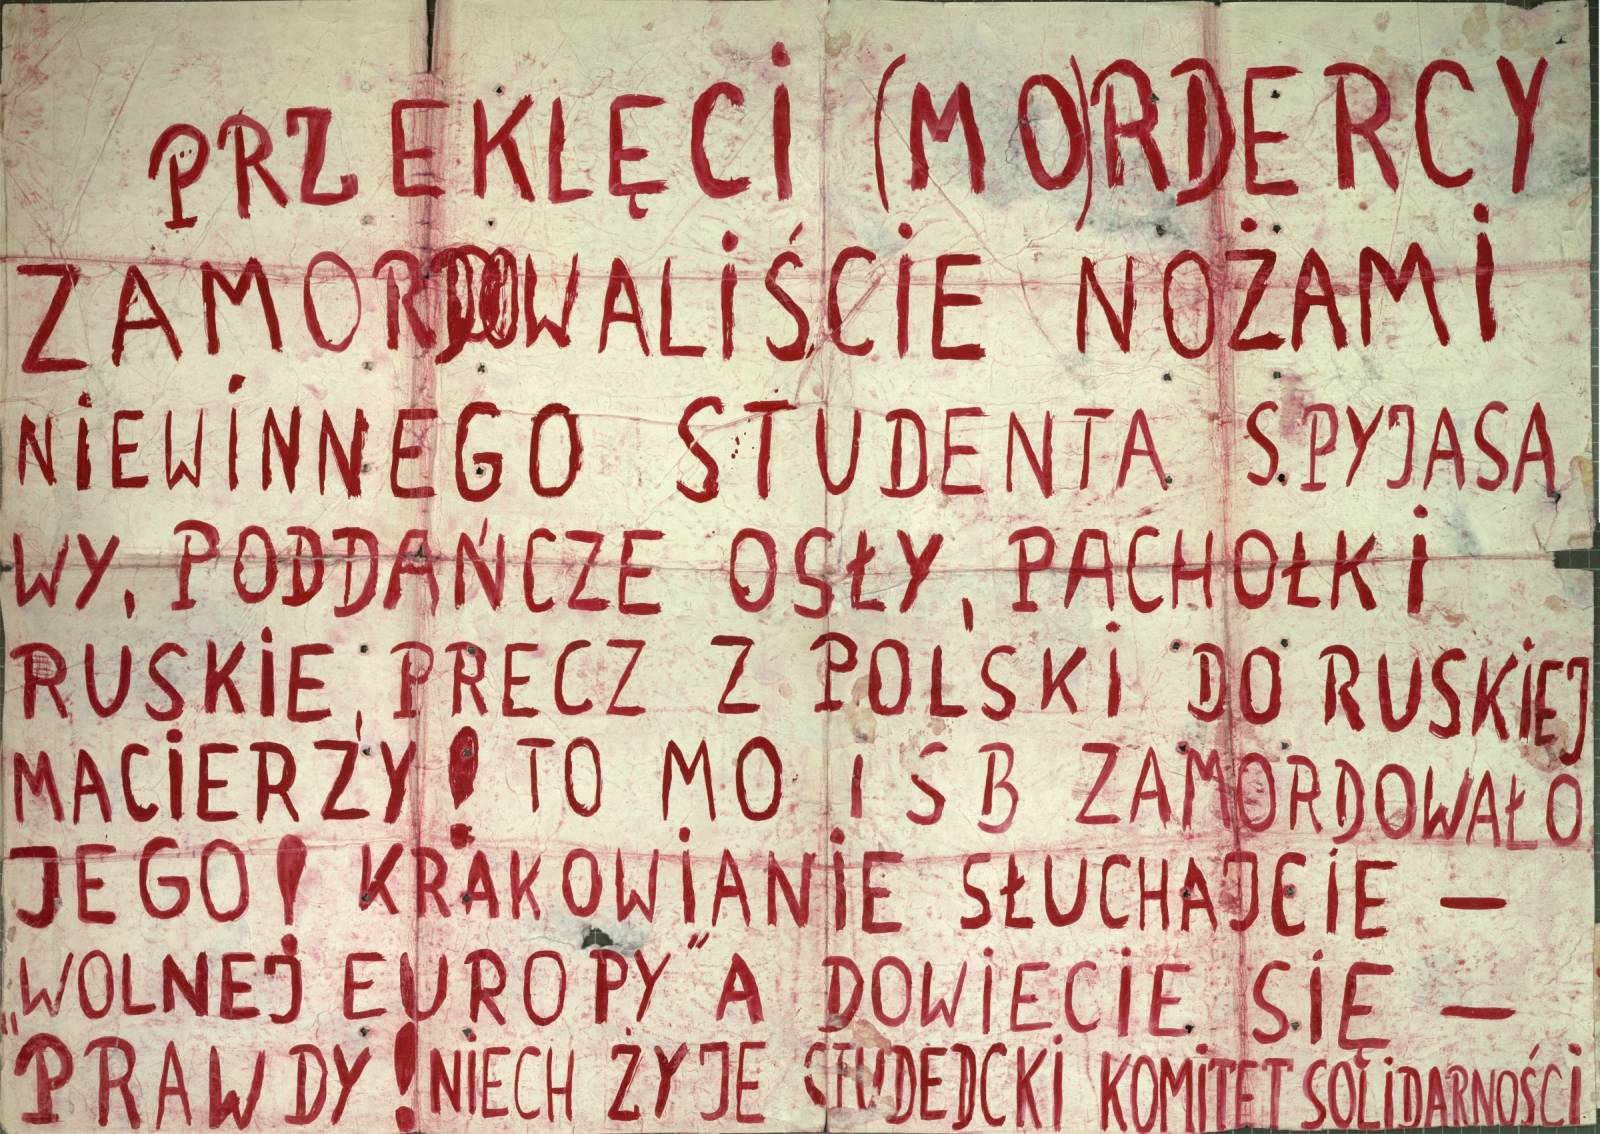 PRZEKLĘCI (MO)RDERCY
ZAMORDOWALIŚCIE NOŻAMI
NIEWINNEGO STUDENTA S.PYJASA
WY, PODDAŃCZE OSŁY, PACHOŁKI
RUSKIE, PRECZ Z POLSKI DO RUSKIEJ
MACIERZY! TO MO i SB ZAMORDOWAŁO
JEGO! KRAKOWIANIE SŁUCHAJCIE —
„WOLNEJ EUROPY" A DOWIECIE SIĘ —
PRAWDY! NIECH ŻYJE STUDEDCKI KOMITET SOLIDARNOŚCI